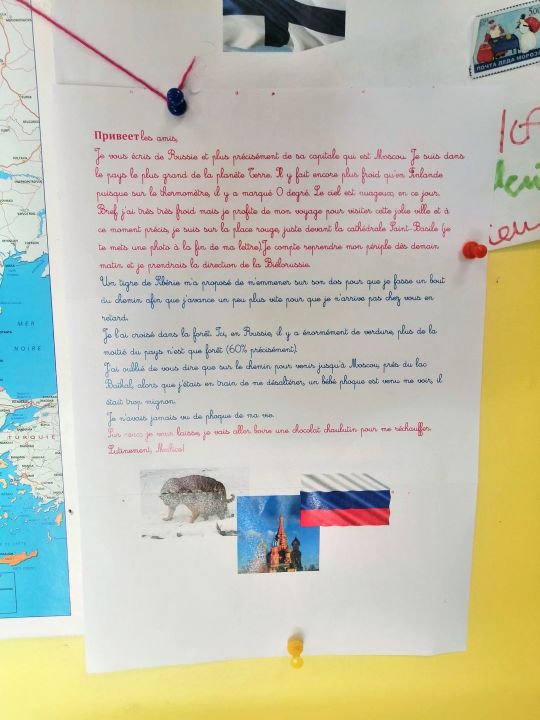 ПОЧТА ДЕДА МОРОЗА
Привеет les amis,
Je vous écris de Russie et plus précisément de sa capitale qui est Moscou. Je suis dans
le pays le plus grand de la planète Terre. Il y fait encore plus froid qu'en Finlande
puisque sur le thermomètre, il y a marqué 0 degré. Le ciel est nuageux, en ce jour.
Bref, j'ai très très froid mais je profite de mon voyage pour visiter cette jolie ville et à
ce moment précis, je suis sur la place rouge, juste devant la cathédrale Saint-Basile (je
te mets une photo à la fin de ma lettre). Je compte reprendre mon périple dès demain
matin et je prendrais la direction de la Biélorussie.
Un tigre de Sibérie m'a proposé de m'emmener sur son dos pour que je fasse un bout
du chemin afin que j'avance un peu plus vite pour que je n'arrive pas chez vous en
retard.
Je l'ai croisé dans la forêt. Ici, en Russie, il y a énormément de verdure, plus de la
moitié du pays n'est que forêt (60% précisément).
J'ai oublié de vous dire que sur le chemin pour venir jusqu'à Moscou, près du lac
Baïkal, alors que j'étais en train de me désaltérer, un bébé phoque est venu me voir, il
était trop mignon.
Je n'avais jamais vu de phoque de ma vie.
Sur ce je vous laisse, je vais aller boire une chocolat chaulutin pour me réchauffer.
Lutinement, Malice!
MER
NOIRE
TURQUIE